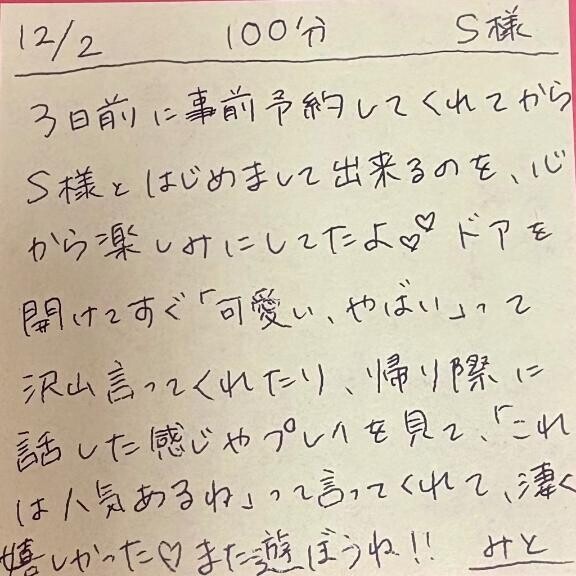 12/2 100分 S様
3日前に事前予約してくれてから
S様とはじめまして出来るのを、心
から楽しみにしてたよ♡♡ ドアを
開けてすぐ「可愛い、やばい」って
沢山言ってくれたり、帰り際に
話した感じやプレイを見て、「これ
は人気あるね」って言ってくれて、凄く
嬉しかった♡また遊ぼうね!! みと